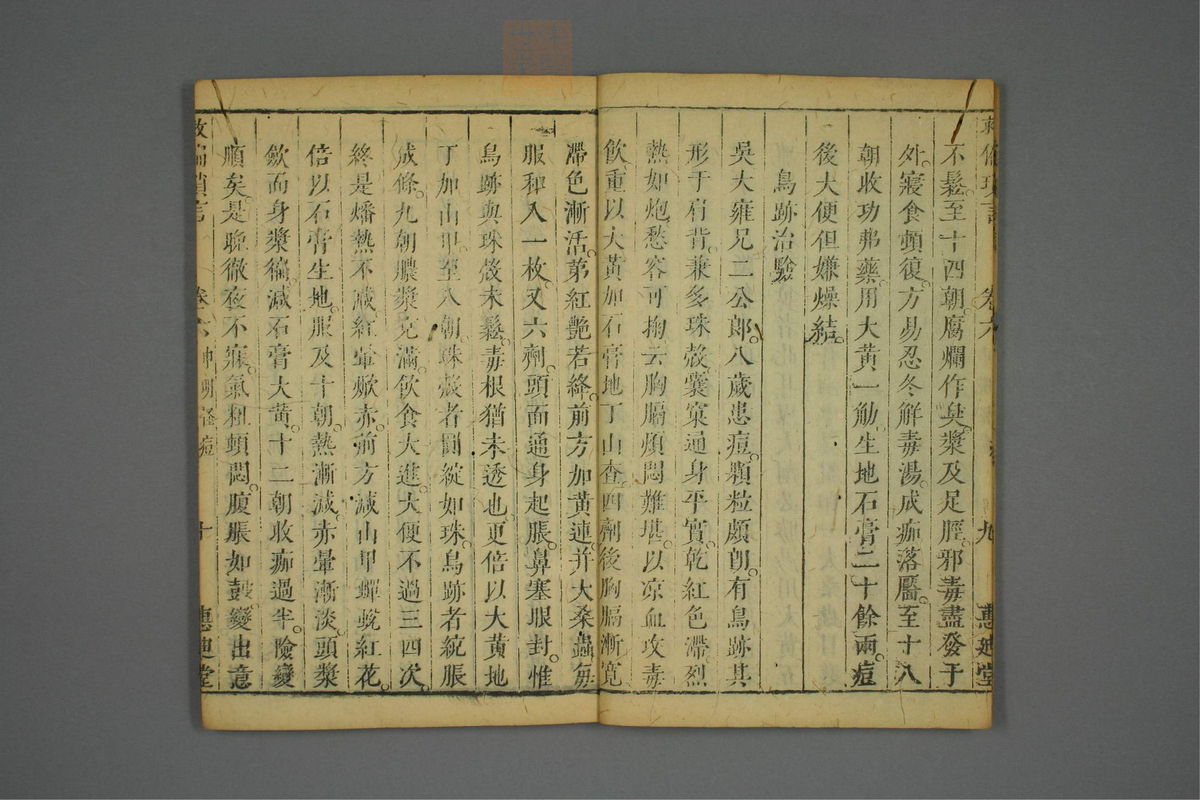 不鬆。至十四朝。腐爛作臭。漿及足脛。邪毒盡發于
外。寢食頓復。方易忍冬解毒湯。成痂落靨。至十八
朝收功弗藥。用大黃一觔。生地石膏二十餘兩。痘
後大便但嫌燥結。
鳥跡治驗
吳大雍兄二公郎。八歲患痘。顆粒頗朗。有鳥跡其
形于肩背。兼多珠殼囊窠。通身平實。乾紅色滯。烈
熱如炮。愁容可掬。云胸膈煩悶難堪。以凉血攻毒
飲。重以大黃加石膏地丁山查。四劑後胸膈漸寬
滯色漸活。第紅艷若絳。前方加黃連。并大桑蟲每
服稗入一枚。又六劑。頭面通身起脹。鼻塞眼封。惟
鳥跡與珠殼未鬆。毒根猶未透也。更倍以大黃地
丁加山甲。至八朝。珠殼者圓綻如珠。鳥跡者統脹
成條。九朝膿漿充滿。飲食大進。大便不過三四次。
終是燔熱不減。紅暈焮赤。前方減山甲蟬蛻紅花。
倍以石膏生地。服及十朝。熱漸減。赤暈漸淡。頭漿
歛而身漿稿。減石膏大黃。十二朝收痂過半。險變
順矣。是晚徹夜不寐。氣粗頓悶。腹脹如鼓。變出意
卷六
十
惠迪堂
卷六
九
惠迪堂